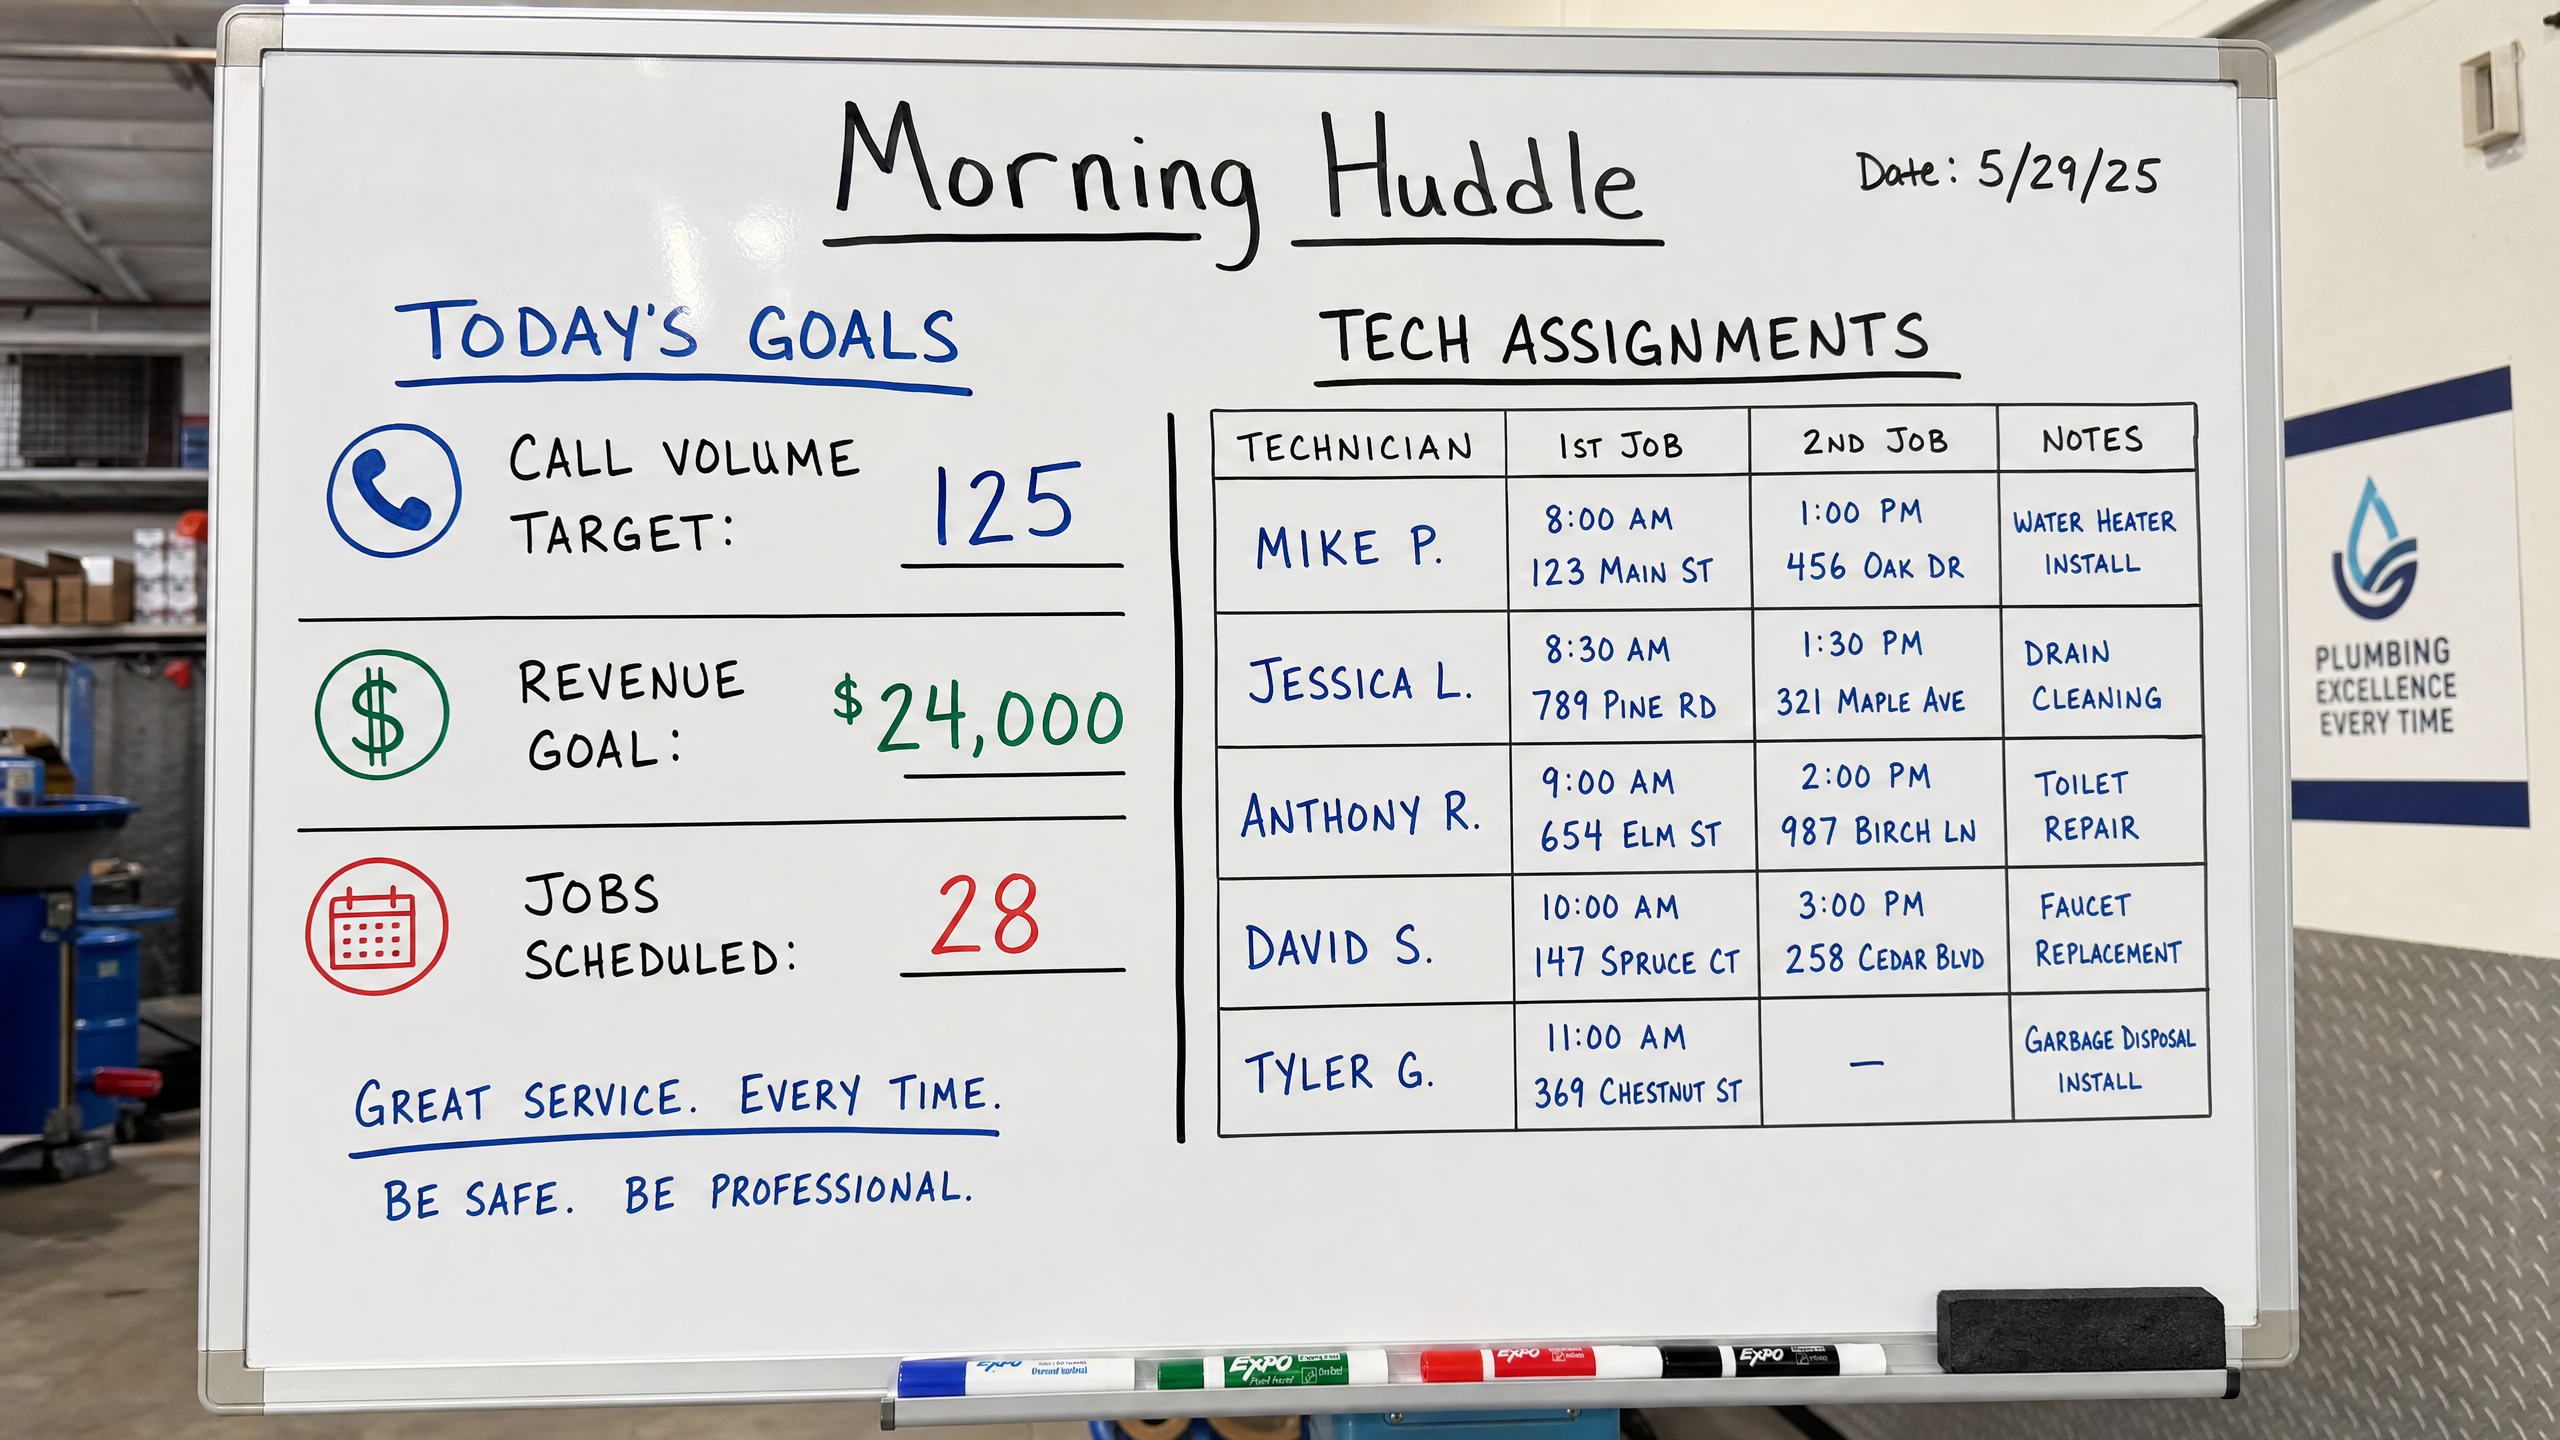 Morning Huddle
Date: 5/29/25
TODAY'S GOALS
CALL VOLUME
TARGET:
125
REVENUE
GOAL:
$24,000
JOBS
SCHEDULED:
28
GREAT SERVICE. EVERY TIME.
BE SAFE. BE PROFESSIONAL.
TECH ASSIGNMENTS
TECHNICIAN 1ST JOB 2ND JOB NOTES
MIKE P.
8:00 AM
123 MAIN ST
1:00 PM
456 OAK DR
WATER HEATER
INSTALL
JESSICA L.
8:30 AM
789 PINE RD
1:30 PM
321 MAPLE AVE
DRAIN
CLEANING
ANTHONY R.
9:00 AM
654 ELM ST
2:00 PM
987 BIRCH LN
TOILET
REPAIR
DAVID S.
10:00 AM
147 SPRUCE CT
3:00 PM
258 CEDAR BLVD
FAUCET
REPLACEMENT
TYLER G.
11:00 AM
369 CHESTNUT ST
—
GARBAGE DISPOSAL
INSTALL
PLUMBING
EXCELLENCE
EVERY TIME
EXPO
EXPO
EXPO
EXPO